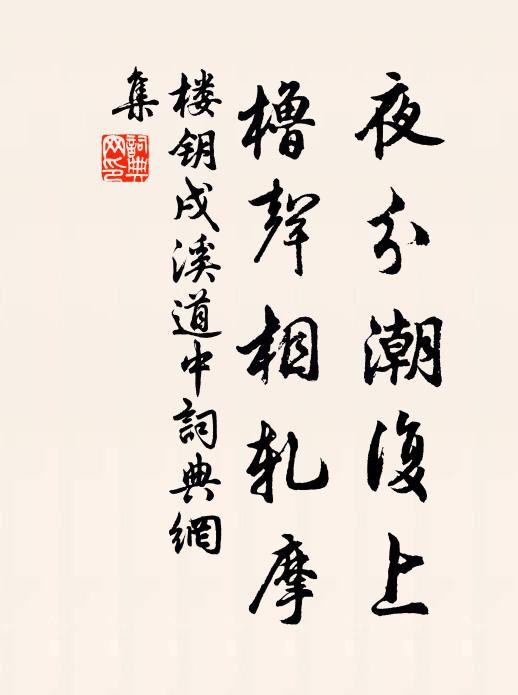 夜分潮復上
櫓聲相軋摩
楼钥戍溪道中詞典網
集
詞典
网印